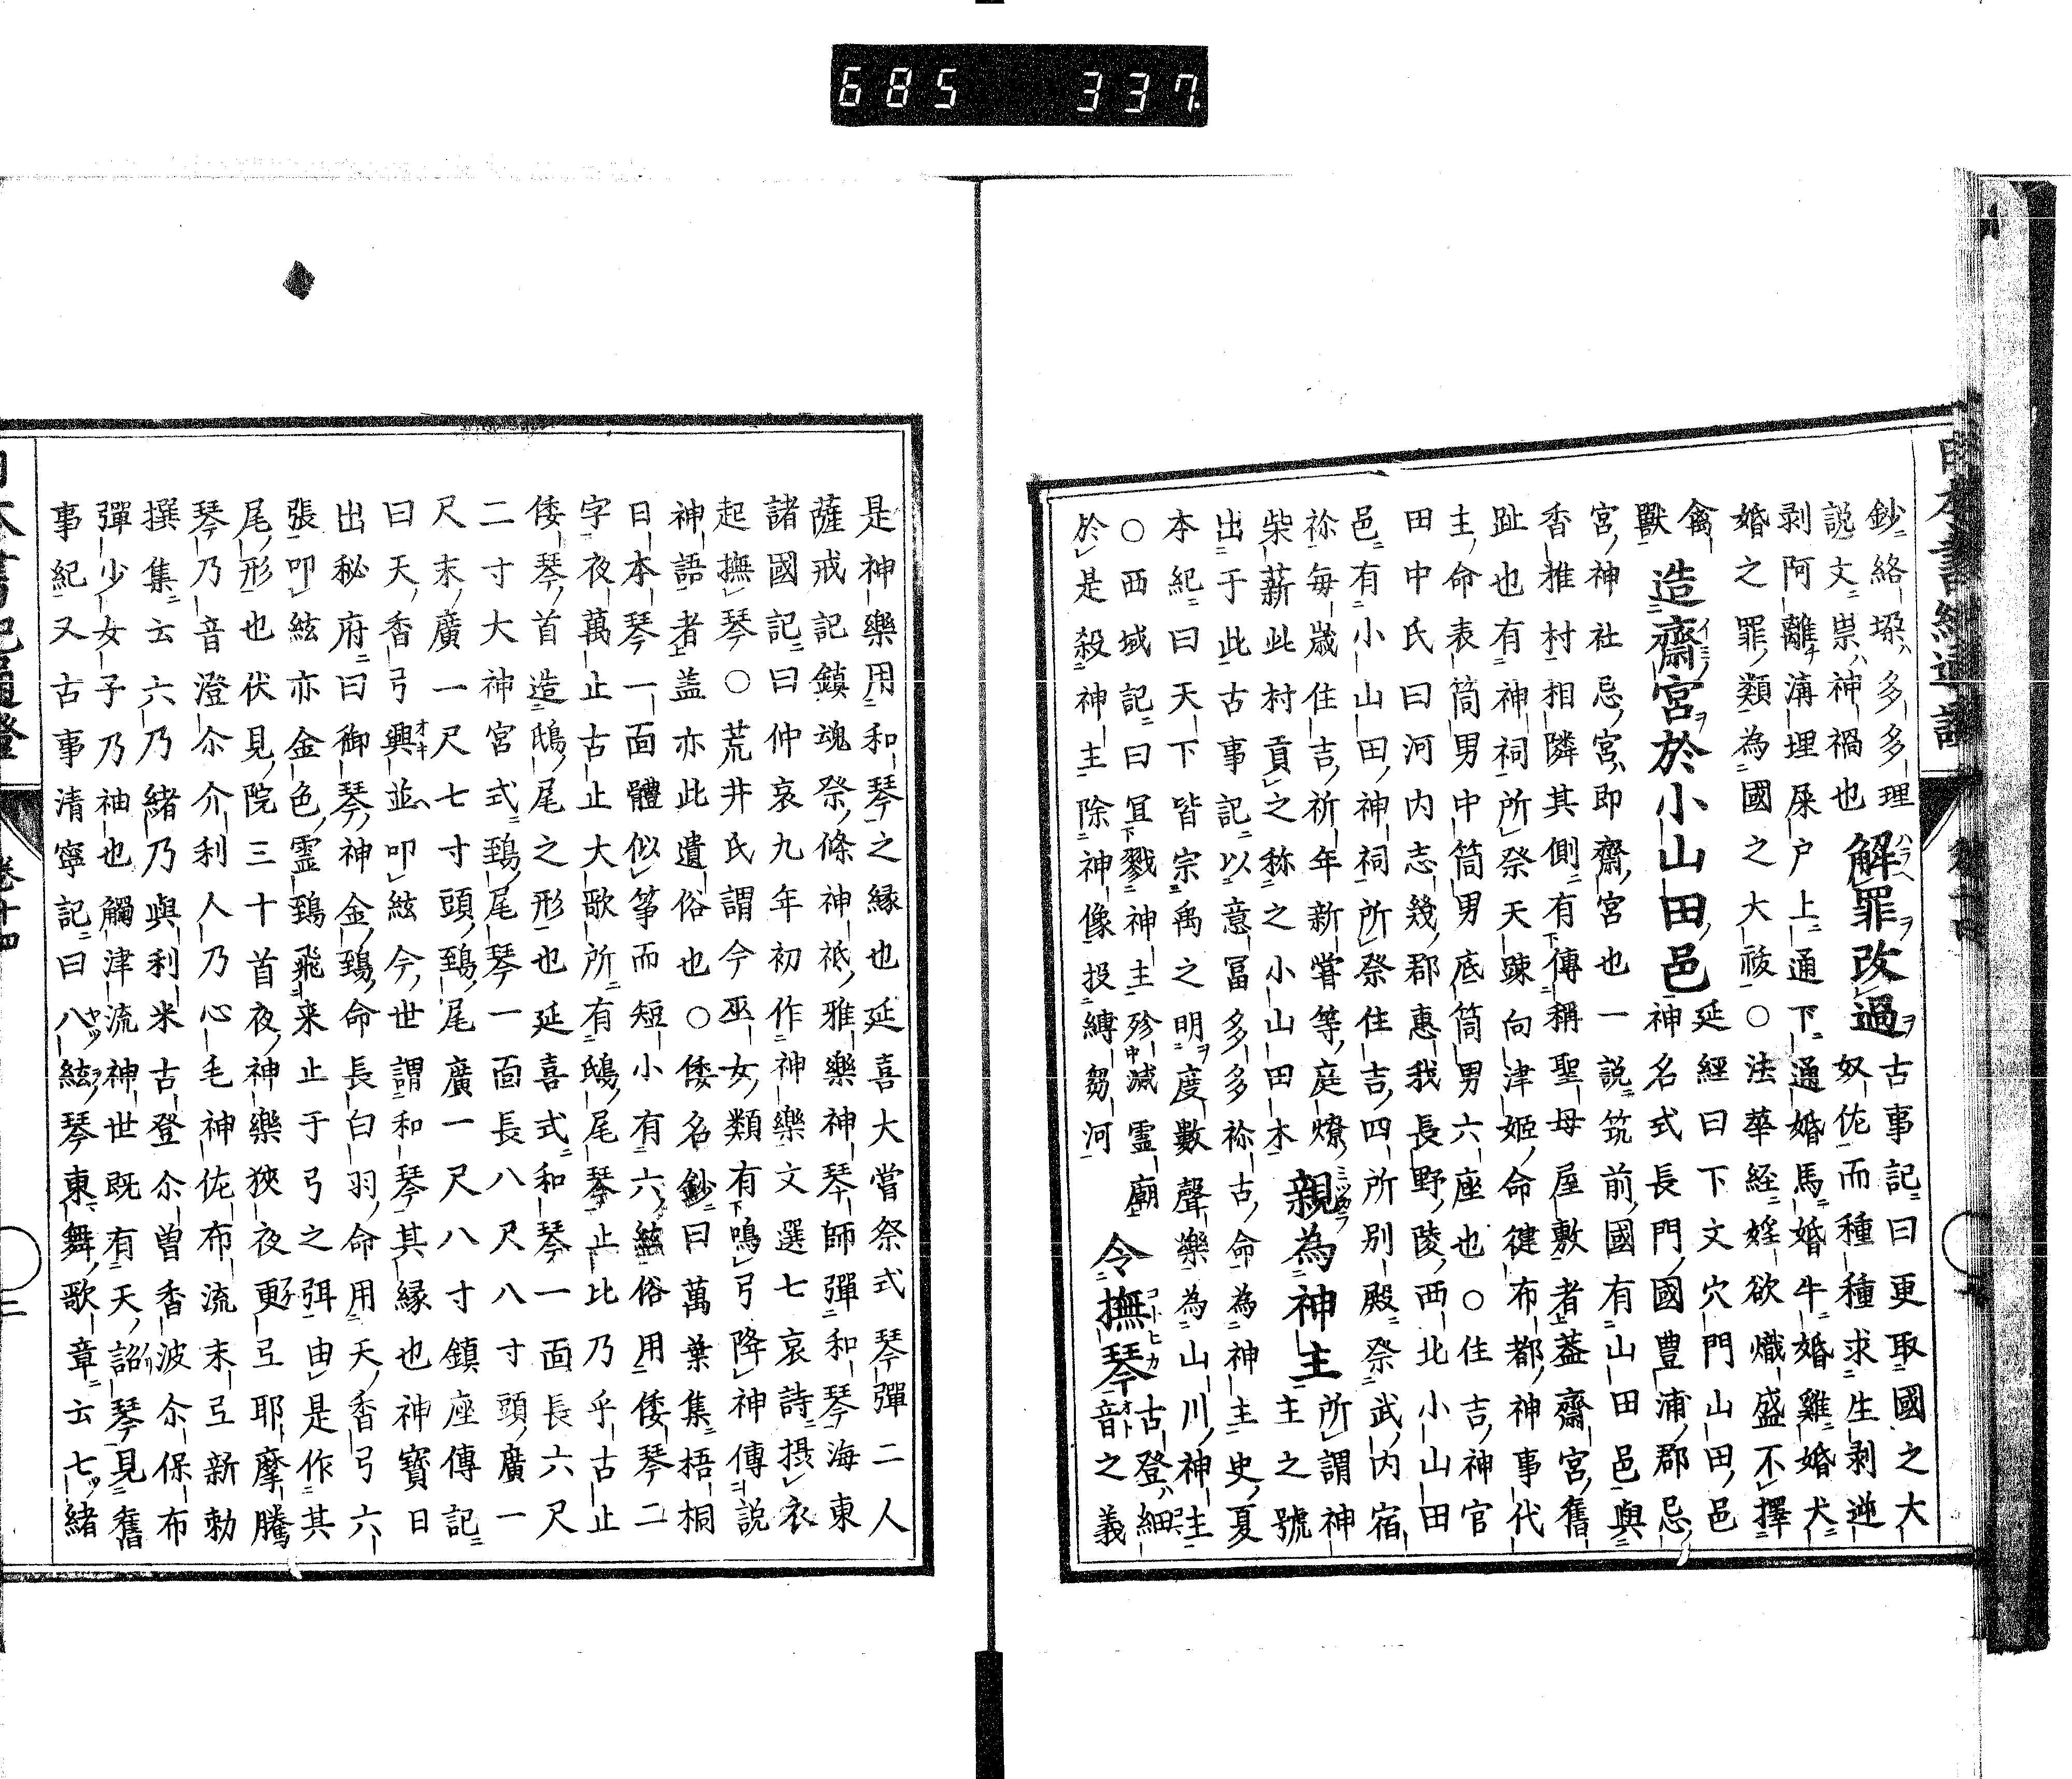 685 337
鈔絡垜多多理解罪改過古事記曰更取國之大
說文祟神禍也奴佐而種種求生剥逆
剥阿離溝埋屎戸上通下通婚馬婚牛婚雞婚犬
婚之罪類為國之大祓○法華経婬欲熾盛不擇
禽獸造齋宮於小山田邑延經曰下文穴門山田邑神名式長門國豊浦郡忌
宮神社忌宮即齋宮也一說筑前國有山田邑與
香椎村相隣其側有傳稱聖母屋敷者蓋齋宮舊
趾也有神祠所祭天疎向津姫命健布都神事代
主命表筒男中筒男底筒男六座也○住吉神官
田中氏曰河内志幾郡惠我長野陵西北小山田
邑有小山田神祠所祭住吉四所別殿祭武内宿
祢毎歳住吉祈年新嘗等庭燎親為神主所謂神
柴薪此村貢之称之小山田木主之號
出于此古事記以意冨多多祢古命為神主史夏
本紀曰天下皆宗禹之明度數聲樂為山川神主
○西域記曰宜戮神主殄滅霊廟令撫琴古登細
於是殺神主除神像投縛芻河音之義
是神樂用和琴之縁也延喜大嘗祭式琴彈二人
薩戒記鎮魂祭條神祇雅樂神琴師彈和琴海東
諸國記曰仲哀九年初作神樂文選七哀詩摂衣
起撫琴○荒井氏謂今巫女類有鳴弓降神傳説
神語者盖亦此遺俗也○倭名鈔曰萬葉集梧桐
日本琴一面體似箏而短小有六絃俗用倭琴二
字夜萬止古止大歌所有鴟尾琴止比乃乎古止
倭琴首造鴟尾之形也延喜式和琴一面長六尺
二寸大神宮式鵄尾琴一面長八尺八寸頭廣一
尺末廣一尺七寸頭鵄尾廣一尺八寸鎮座傳記
曰天香弓興並叩絃今世謂和琴其縁也神寶日
出秘府曰御琴神金鵄命長白羽命用天香弓六
張叩絃亦金色霊鵄飛来止于弓之弭由是作其
尾形也伏見院三十首夜神樂狹夜更弖耶摩騰
琴乃音澄尒介利人乃心毛神佐布流末弖新勅
撰集云六乃緒乃與利米古登尒曽香波尒保布
彈少女子乃袖也觸津流神世既有天詔琴見舊
事紀又古事清寧記曰八絃琴東舞歌章云七緒